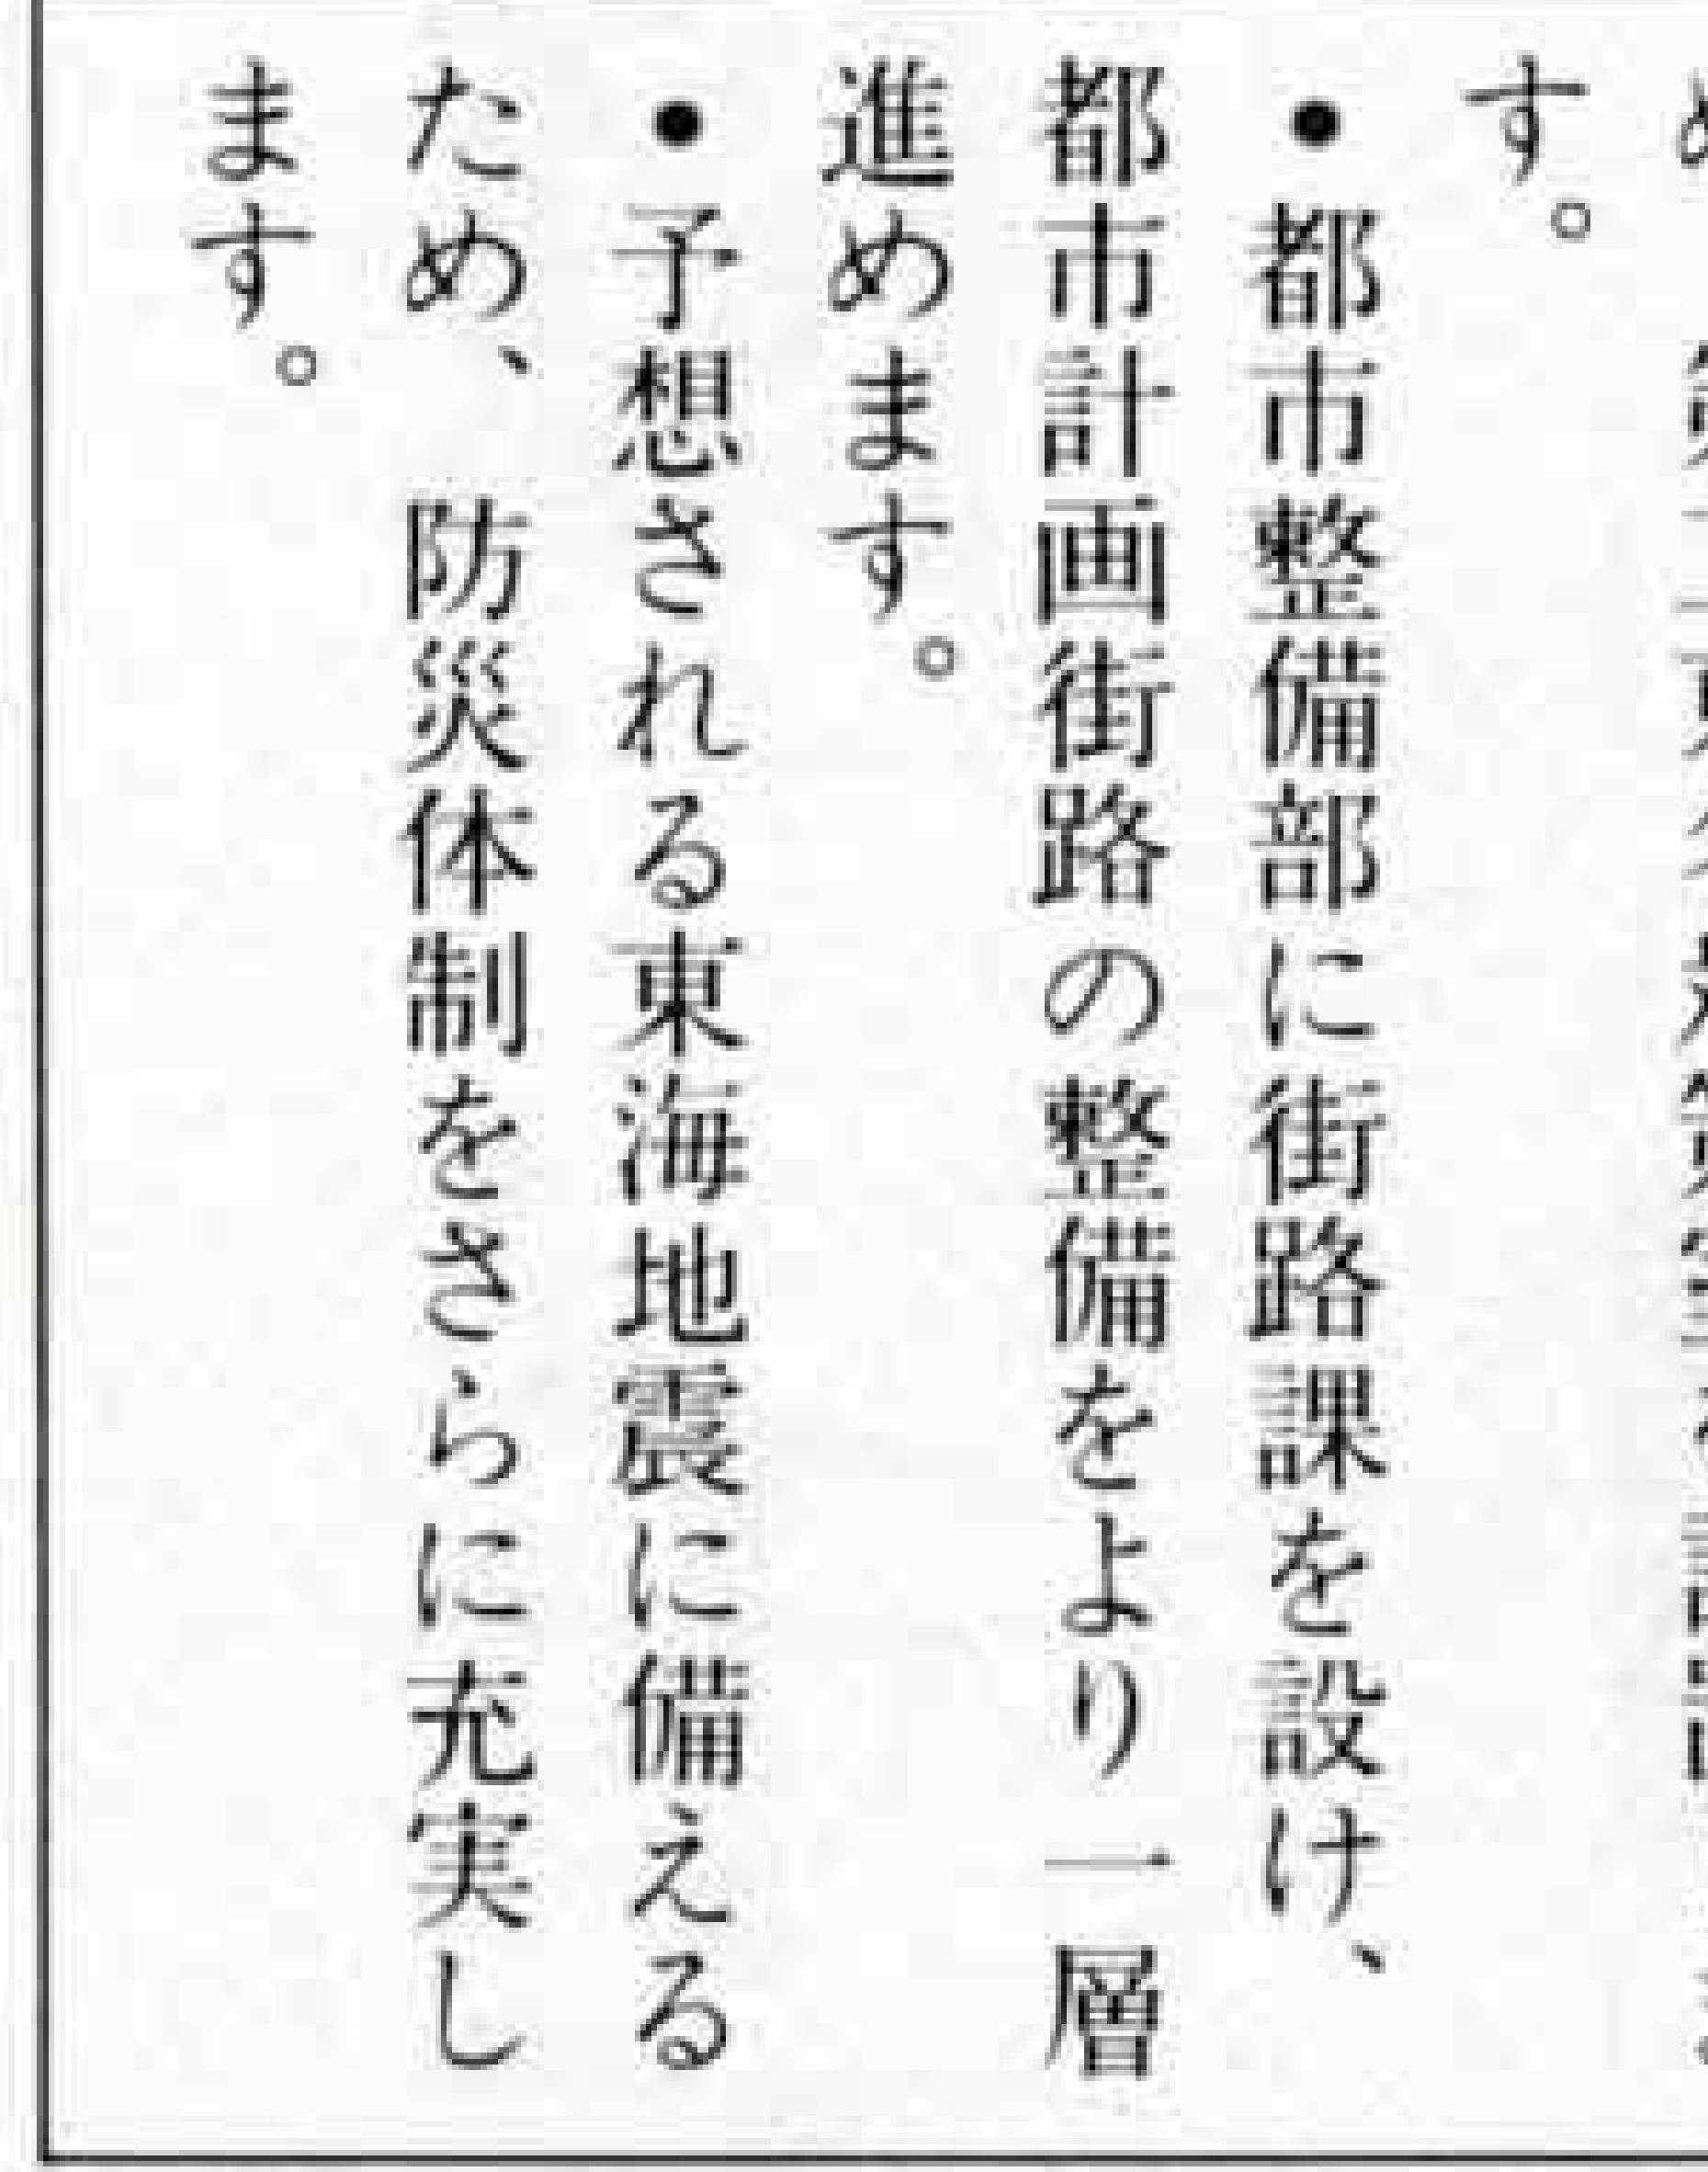 す。
●都市整備部に街路課を設け、
都市計画街路の整備をより一層
進めます。
●予想される東海地震に備える
ため、防災体制をさらに充実し
ます。